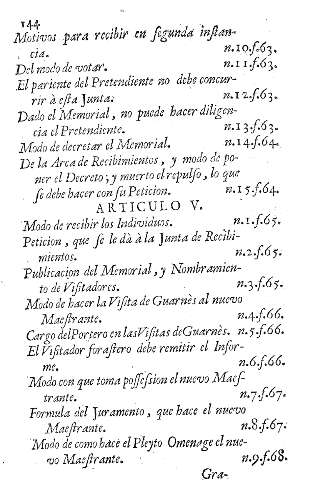 144
Motivos para recibir en segunda instan-
cia. n.10.f.63.
Del modo de votar. n.11.f.63.
El pariente del Pretendiente no debe concur-
rir à esta Junta. n.12.f.63.
Dado el Memorial, no puede hacer diligen-
cia el Pretendiente. n.13.f.63.
Modo de decretar el Memorial. n.14.f.64.
De la Arca de Recibimientos, y modo de po-
ner el Decreto; y muerto el repulso, lo que
se debe hacer con su Peticion. n.15.f.64.
ARTICULO V.
Modo de recibir los Individuos. n.1.f.65.
Peticion, que se le dà à la Junta de Recibi-
mientos. n.2.f.65.
Publicacion del Memorial, y Nombramien-
to de Visitadores. n.3.f.65.
Modo de hacer la Visita de Guarnès al nuevo
Maestrante. n.4.f.66.
Cargo del Portero en las Visitas de Guarnès. n.5.f.66.
El Visitador forastero debe remitir el Infor-
me. n.6.f.66.
Modo con que toma possession el nuevo Maes-
trante. n.7.f.67.
Formula del Juramento, que hace el nuevo
Maestrante. n.8.f.67.
Modo de como hace el Pleyto Omenage el nue-
vo Maestrante. n.9.f.68.
Gra-